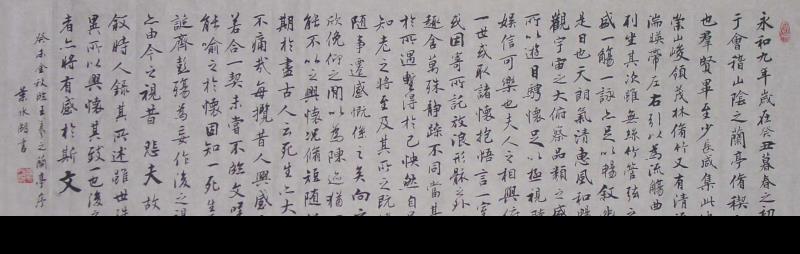 永和九年歲在癸丑暮春之初
于會稽山陰之蘭亭脩禊
也羣賢畢至少長咸集此
崇山峻領茂林脩竹又有清
湍暎帶左右引以為流觴曲
列坐其次雖無絲竹管弦之
盛一觴一詠亦足以暢叙
是日也天朗氣清惠風和暢
觀宇宙之大俯察品類之盛
所以遊目騁懷足以極視
娛信可樂也夫人之相與俯
一世或取諸懷抱悟言一室
或因寄所託放浪形骸之外
趣舍萬殊靜躁不同當其
於所遇暫得於己快然自
知老之將至及其所之既
隨事遷感慨係之矣向之
欣俛仰之間以為陳迹猶
能不以之興懷況脩短隨
期於盡古人云死生亦大
不痛哉每攬昔人興感
善合一契未嘗不臨文嗟
能喻之於懷固知一死生
誕齊彭殤為妄作後之視
亦由今之視昔 悲夫 故
叙時人錄其所述雖世殊
異所以興懷其致一也後之
者亦將有感於斯文
癸未金秋 臨王羲之蘭亭序
葉水湖書